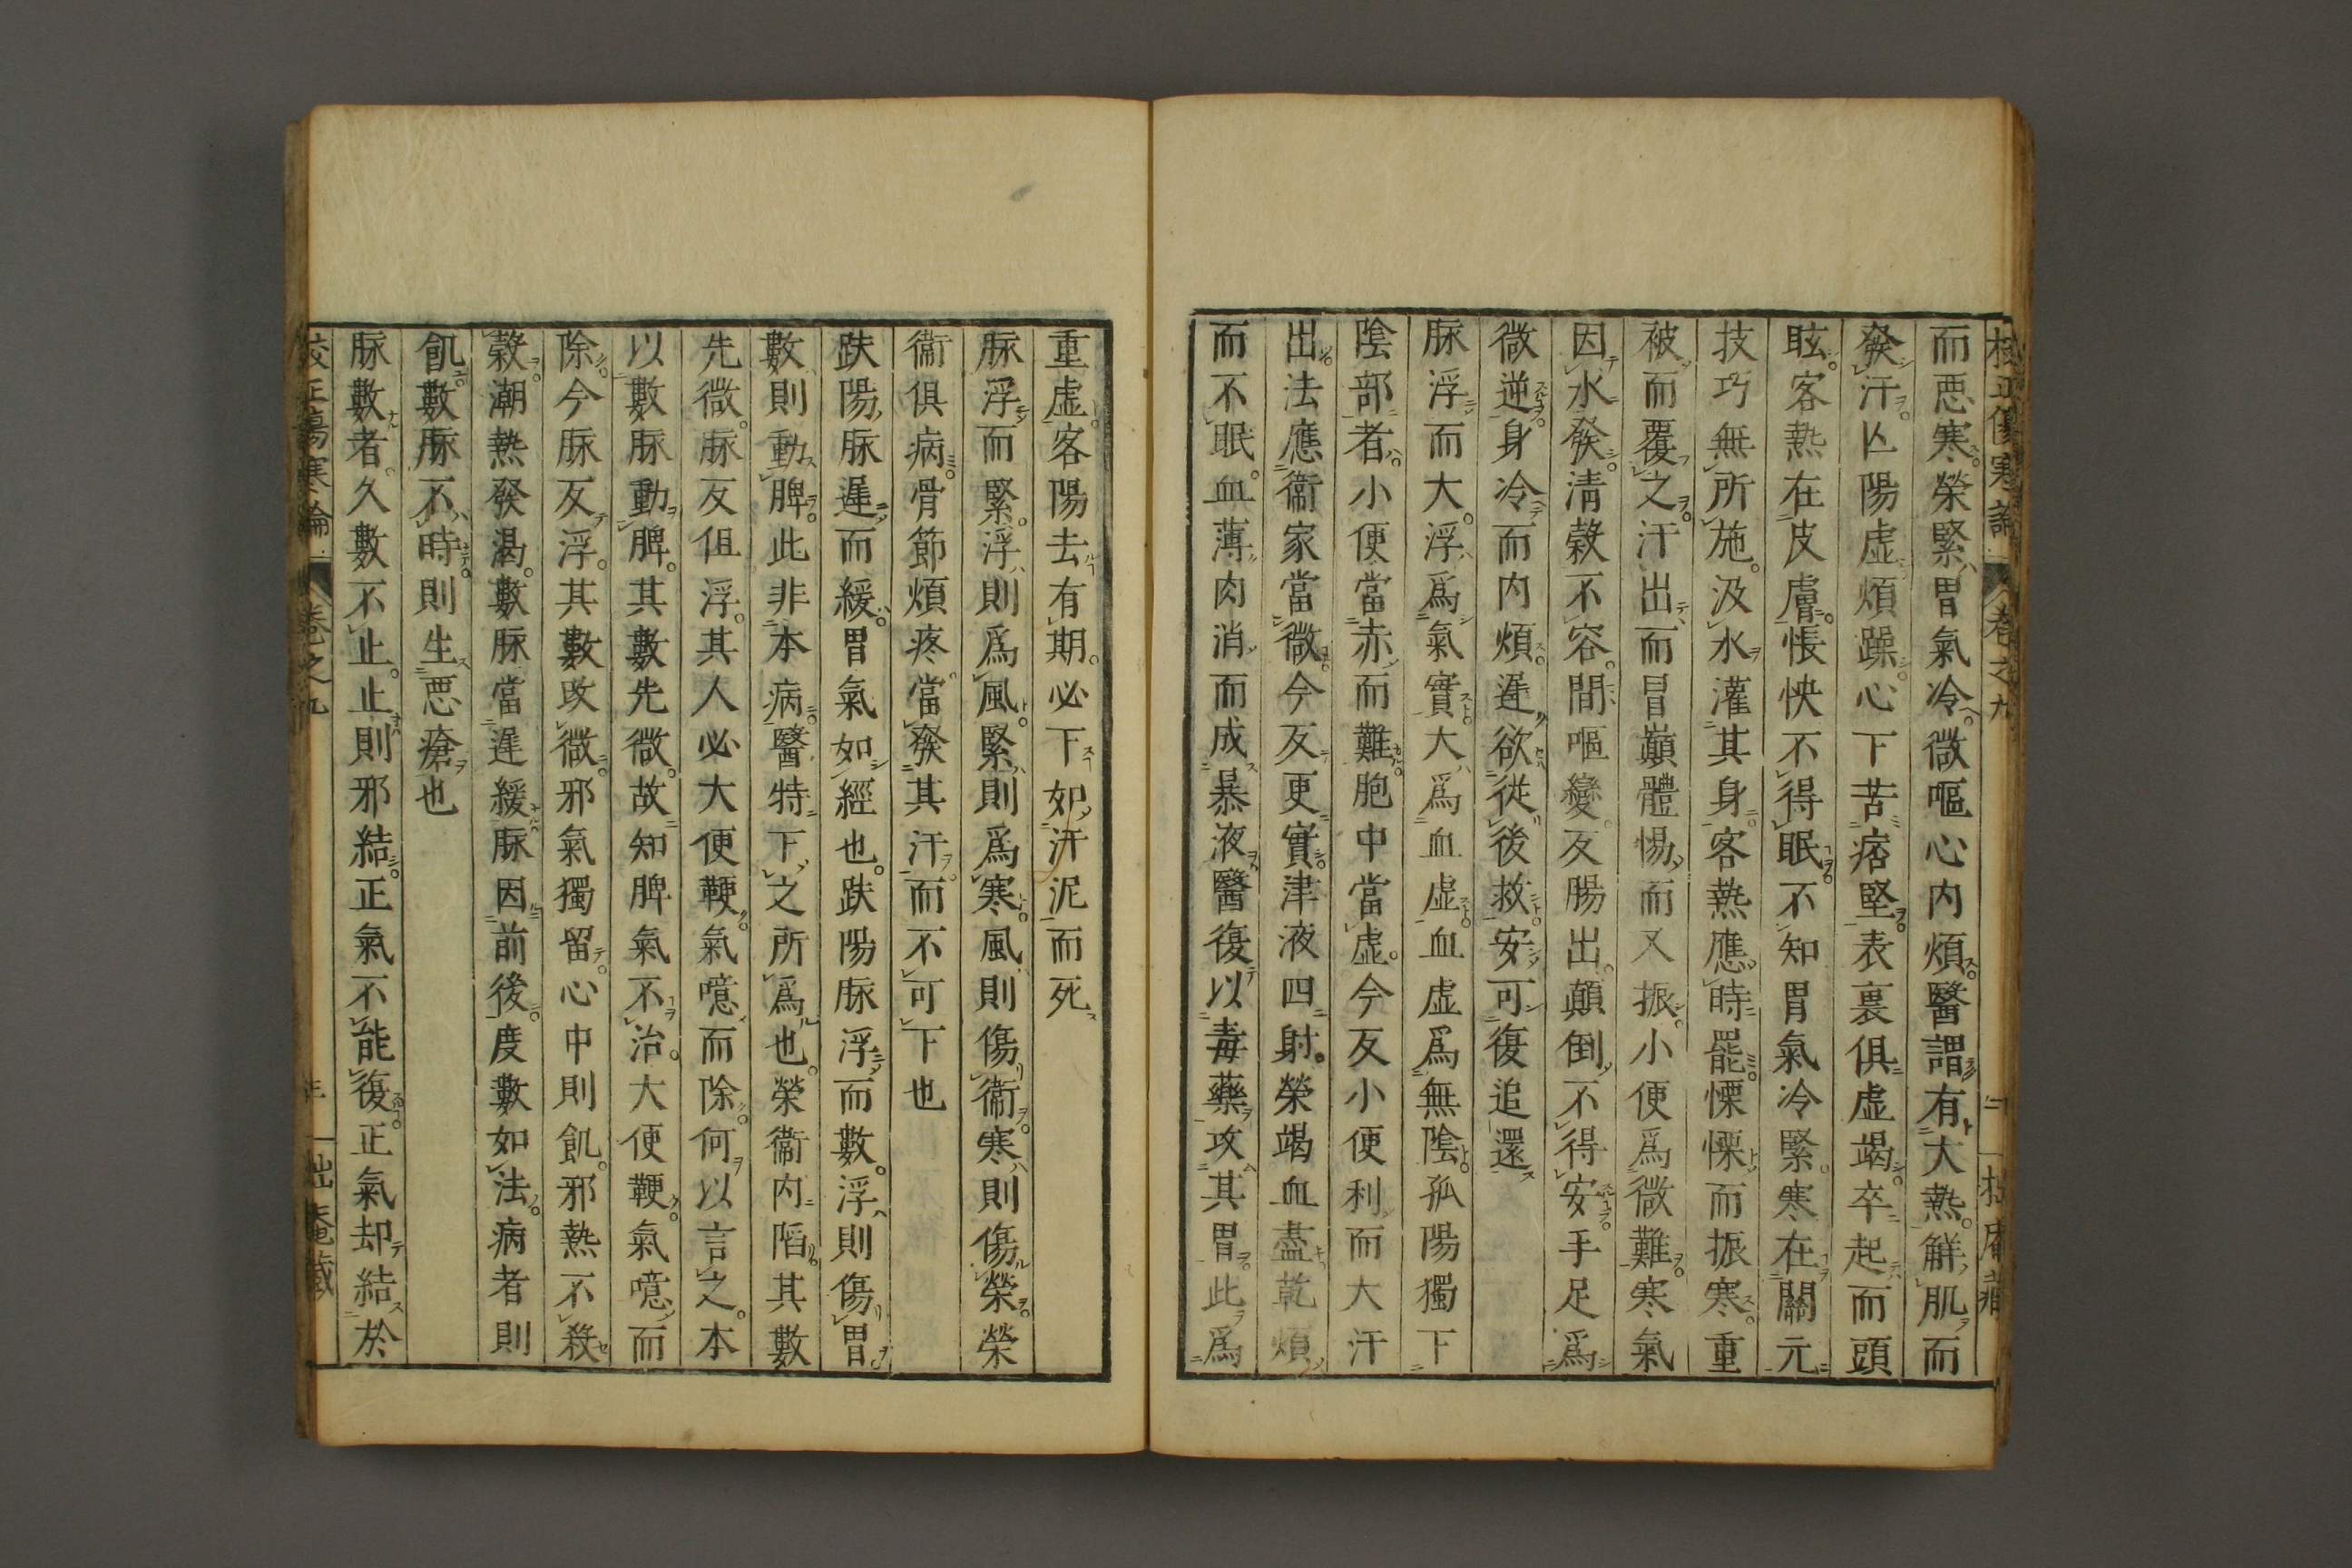 校正傷寒論 卷之九
而惡寒榮緊胃氣冷微嘔心內煩醫謂有大熱解肌而
發汗亾陽虛煩躁心下苦痞堅表裏俱虛竭卒起而頭
眩客熱在皮膚悵怏不得眠不知胃氣冷緊寒在關元
技巧無所施汲水灌其身客熱應時罷慄慄而振寒重
被而覆之汗出而冒巔體惕而又振小便爲微難寒氣
因水發淸穀不容間嘔變反腸出顛倒不得安手足爲
微逆身冷而內煩遲欲從後救安可復追還
脉浮而大浮爲氣實大爲血虛血虛爲無陰孤陽獨下
陰部者小便當赤而難胞中當虛今反小便利而大汗
出法應衞家當微今反更實津液四射榮竭血盡乾煩
而不眠血薄肉消而成暴液醫復以毒藥攻其胃此爲
重虛客陽去有期必下如汙泥而死
脉浮而緊浮則爲風緊則爲寒風則傷衞寒則傷榮榮
衞俱病骨節煩疼當發其汗而不可下也
趺陽脉遲而緩胃氣如經也趺陽脉浮而數浮則傷胃
數則動脾此非本病醫特下之所爲也榮衞內陷其數
先微脉反但浮其人必大便鞕氣噫而除何以言之本
以數脉動脾其數先微故知脾氣不治大便鞕氣噫而
除今脉反浮其數改微邪氣獨留心中則飢邪熱不殺
穀潮熱發渴數脉當遲緩脉因前後度數如法病者則
飢數脉不時則生惡瘡也
脉數者久數不止止則邪結正氣不能復正氣却結於
校正傷寒論 卷之九